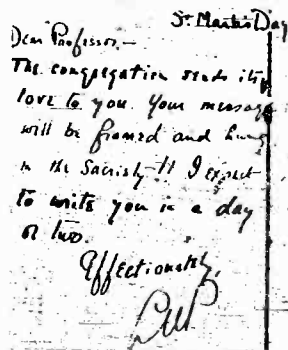 St Martin's Day
Dear Professor,—
The congregation sends its
love to you. Your message
will be framed and hung
in the Sacristy—!! I expect
to write you in a day
or two.
Affectionately,